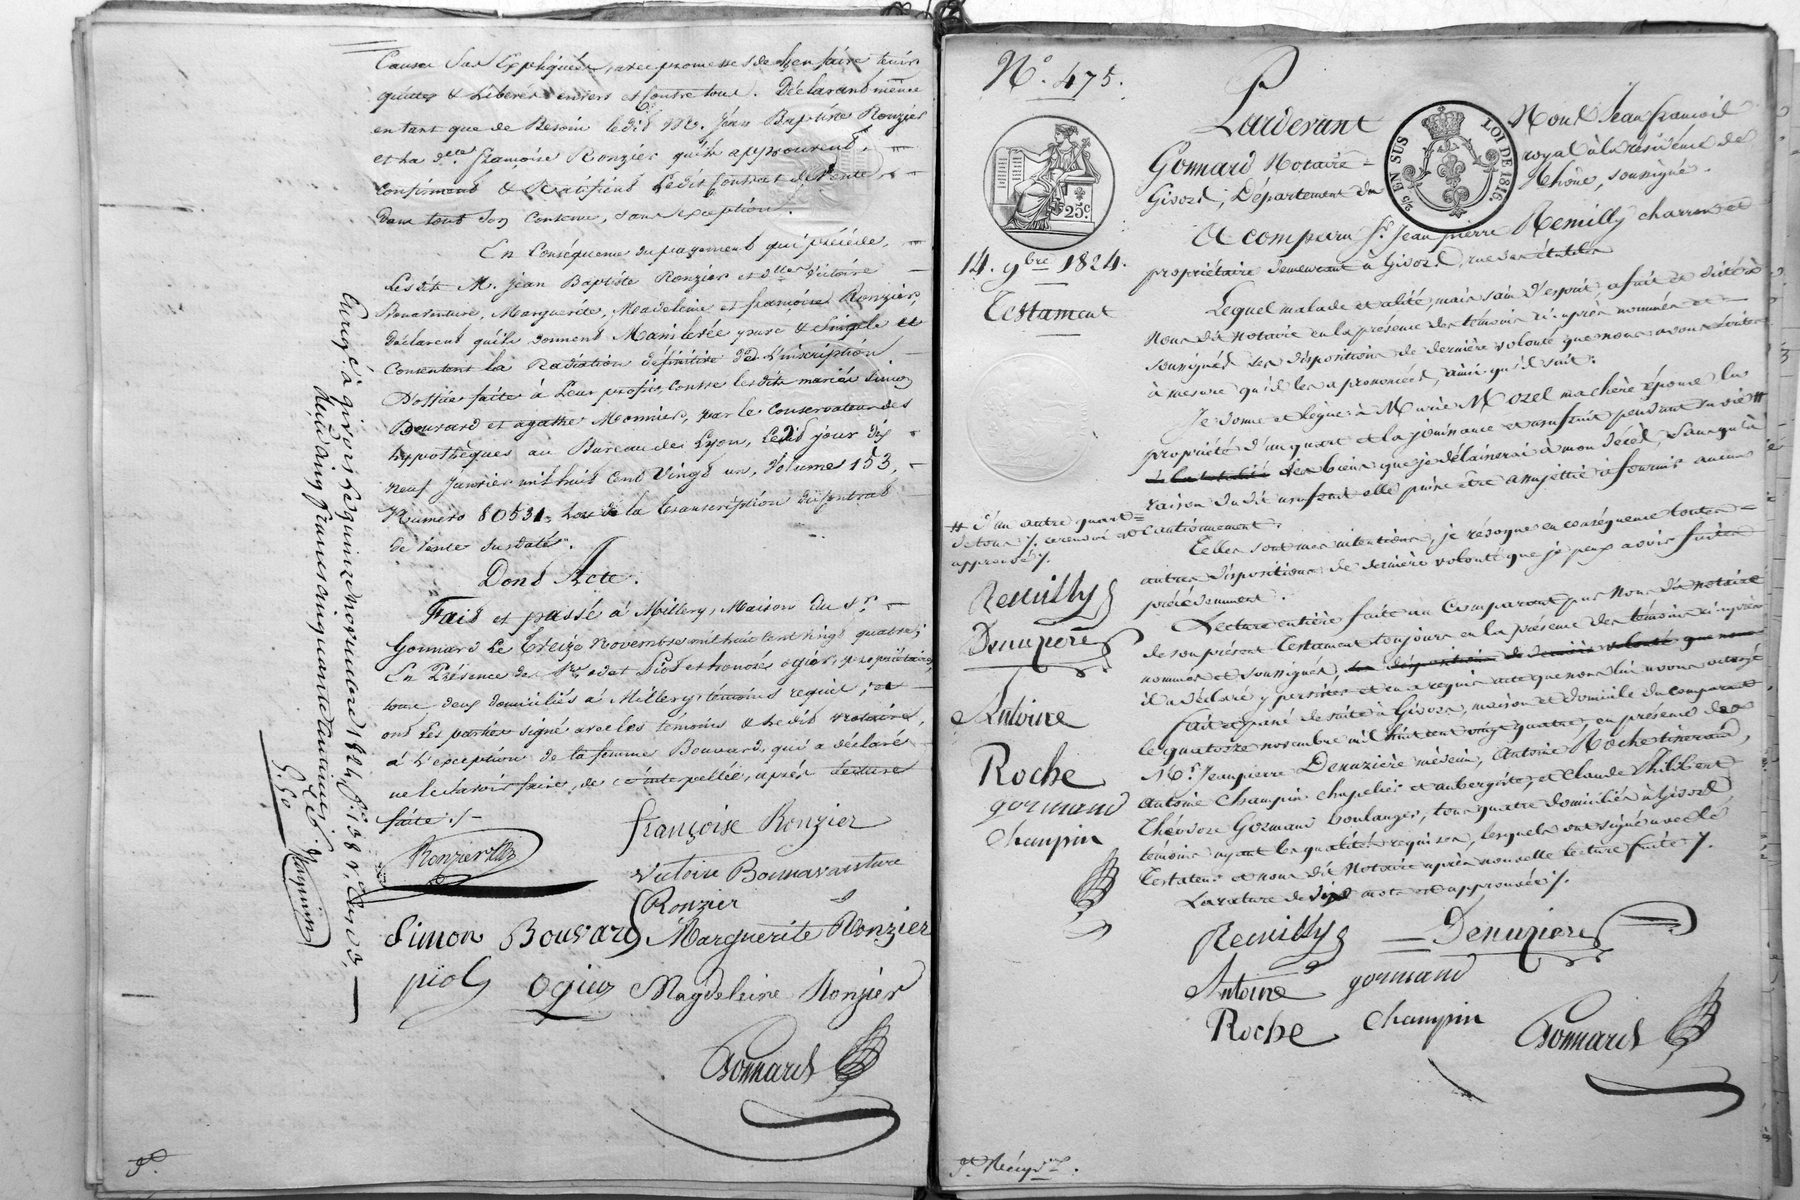 Cause Sus Expliquées, avec promesse de l'en faire tenir
quittes & Libérés envers et contre tous. Déclarant même
en tant que de Besoin ledit Mr. Jean Baptiste Ronzier
et ha dlle françoise Ronzier qu'ils approuvent,
confirment & Ratifient Ledit Contrat de Vente
dans tout Son Contenu, sans exception.
En Conséquence du payement qui précède,
Lesdits M. Jean Baptiste Ronzier et dlles Victoire
Bonaventure, Marguerite, Madeleine et françoise Ronzier,
déclarent qu'ils donnent Main levée pure & Simple et
Consentent la Radiation définitive de L'inscription
D'office faite à Leur profit, Contre lesdits mariés Simon
Bouvard et agathe Monnier, par le Conservateur des
hypothèques au Bureau de Lyon, Ledit jour dix
neuf Janvier mil huit Cent Vingt un, Volume 153,
Numéro 80531, Lors de la transcription du Contrat
de Vente Susdaté.
Dont Acte.
Fait et passé à Millery, Maison du Sr.
Gonnard Le treize Novembre mil huit Cent Vingt quatre,
En Présence de Srs odet Piot et honoré ogier, propriétaires,
tous deux domiciliés à Millery, témoins requis, et
ont Les parties signé avec les témoins & Ledit notaire,
à L'exception de la femme Bouvard, qui a déclaré
ne le Savoir faire, de ce interpellée, après lecture
faite ./.
Ronzier
françoise Ronzier
victoire Bonnavanture
Ronzier
Simon Bouvard
Marguerite Ronzier
piot
ogier
Magdeleine Ronzier
Gonnard
Enregé à givors le quinze novembre 1824, fo 138 Vo
Reçu cinq francs cinquante centimes
5.50
No. 475.
25c
14. 9bre 1824.
Testament
EN SUS
LOI DE 1816.
Pardevant Nous Jean françois
Gonnard Notaire royal à la résidence de
Givors, Département du Rhône, soussigné.
A comparu Sr. Jean pierre Remilly charron et
propriétaire demeurant à Givors, rue des étables
Lequel malade et alité, mais sain d'esprit, a fait et dicté à
Nous dit Notaire en la présence des témoins ci-après nommés et
soussignés ses dispositions de dernière volonté que nous avons écrites
à mesure qu'il les a prononcées, ainsi qu'il suit.
Je donne et lègue à Marie Mozel ma chère épouse la
propriété d'un quart et la jouissance et usufruit pendant sa vie #
de la totalité des biens que je délaisserai à mon décès, sans qu'à
raison dudit usufruit elle puisse être assujettie à fournir aucun
cautionnement.
# d'un autre quart
de tous ./. ce renvoi est
approuvé ./.
Telles sont mes intentions, je révoque en conséquence toutes
autres dispositions de dernière volonté que je peux avoir faites
précédemment.
Lecture entière faite au Comparant par nous dit notaire
de son présent testament toujours en la présence des témoins ci-après
nommés et soussignés,
il a déclaré y persister et en a requis acte que nous lui avons octroyé
fait et passé de suite à Givors, maison et domicile du comparant
le quatorze novembre mil huit cent vingt quatre, en présence de
Mrs Jean pierre Denuzière médecin, Antoine Roche tisserand,
Antoine Champin chapelier et aubergiste, et Claude Philibert
Théodore Gormand boulanger, tous quatre domiciliés à Givors,
témoins ayant les qualités requises, lesquels ont signé avec le
Testateur et nous dit Notaire après nouvelle lecture faite ./.
La rature de dix mots est approuvée ./.
Remilly
Denuziere
Antoine
Roche
gormand
Champin
Remilly
Denuziere
Antoine
gormand
Roche
Champin
Gonnard